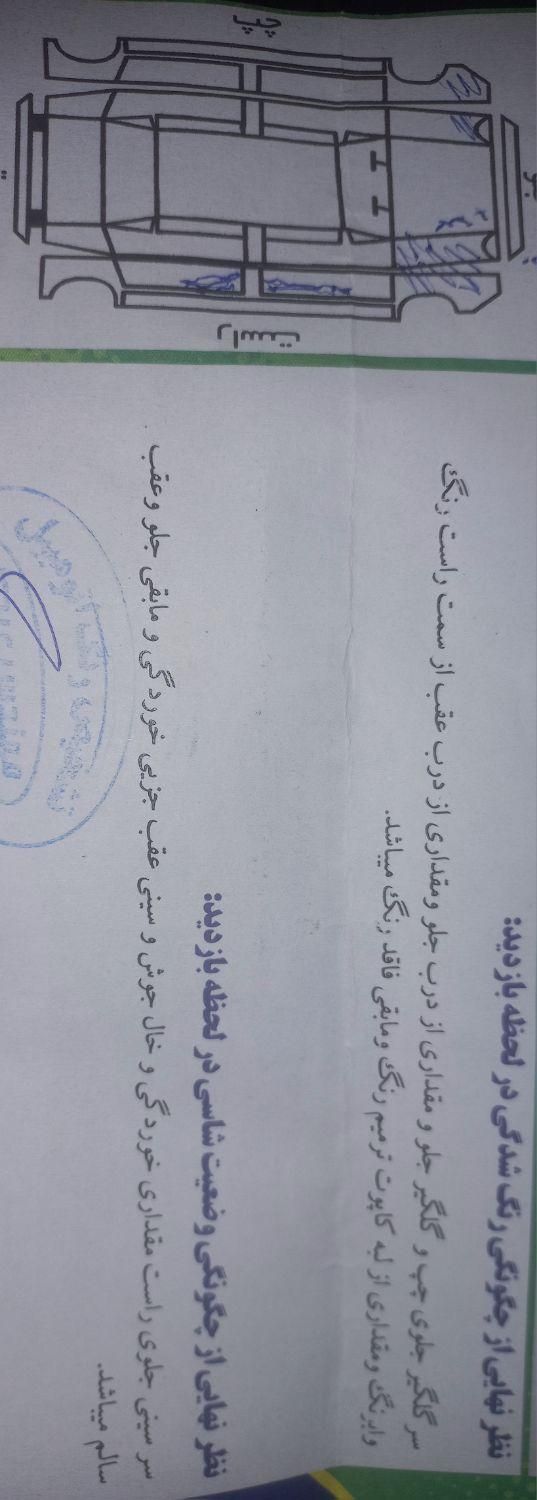 جلو
چپ
راست
نظر نهایی از چگونگی رنگ شدگی در لحظه بازدید:
سر گلگیر جلوی چپ و گلگیر جلو و مقداری از درب جلو ومقداری از درب عقب از سمت راست رنگ
وابرنگ ومقداری از لبه کاپوت ترمیم رنگ ومابقی فاقد رنگ میباشد.
نظر نهایی از چگونگی وضعیت شاسی در لحظه بازدید:
سر سینی جلوی راست مقداری خوردگی و خال جوش و سینی عقب جزیی خوردگی و مابقی جلو وعقب
سالم میباشد.
تشخیص رنگ اتومبیل